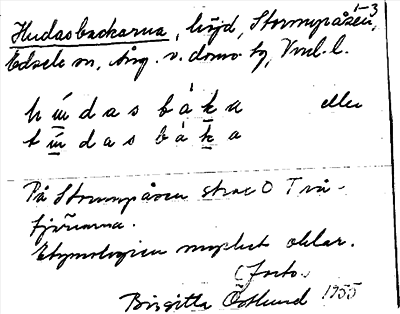 1-3
Hudasbackarna, höjd, Stormyråsen,
Edsele sn, Ång. v. doms tg, Vnl. l.
h ú d a s b á k a eller
t ú d a s b á k a
På Stormyråsen strax O Två-
tjärnarna.
Etymologien mycket oklar.
(forts.
Birgitta Östlund 1955